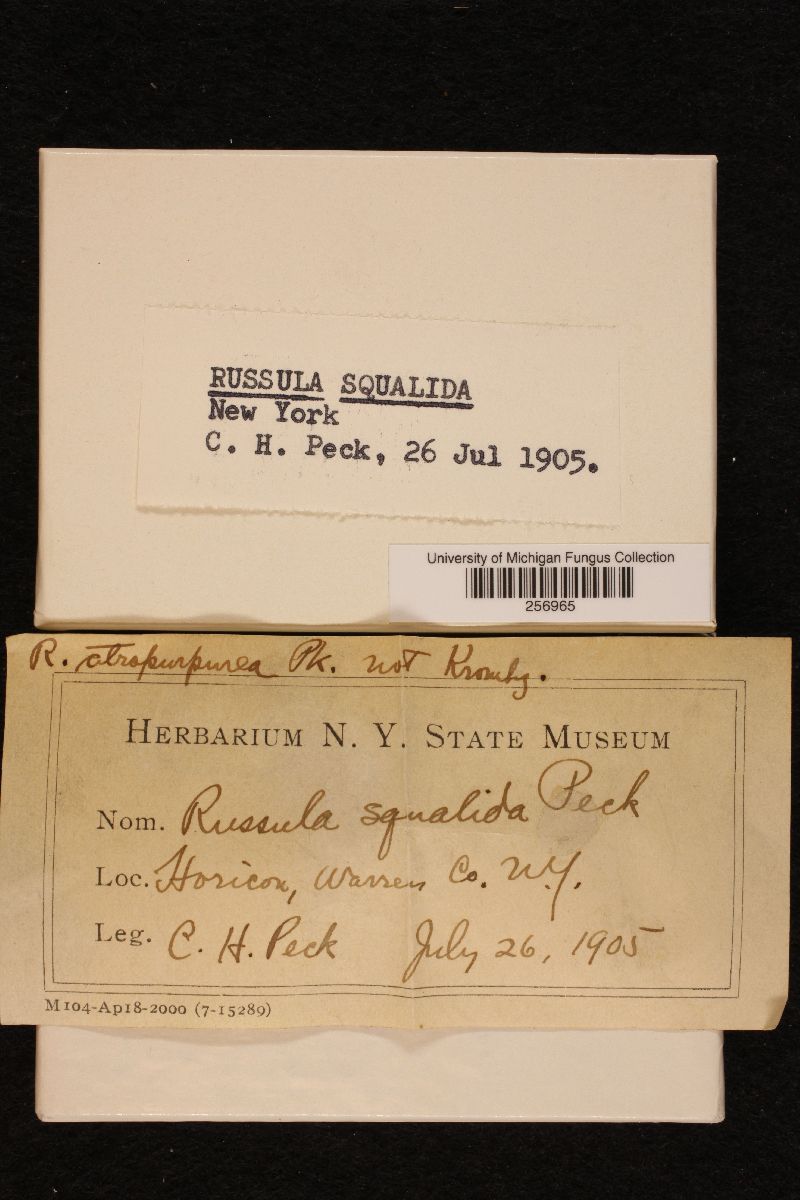 RUSSULA SQUALIDA
New York
C. H. Peck, 26 Jul 1905.
University of Michigan Fungus Collection
256965
R. atropurpurea Pk. not Krombg.
HERBARIUM N. Y. STATE MUSEUM
Nom. Russula squalida Peck
Loc. Horicon, Warren Co. N.Y.
Leg. C. H. Peck July 26, 1905
M104-Ap18-2000 (7-15289)